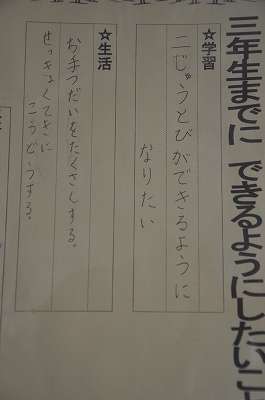 三年生までに できるようにしたいこ
☆学習
二じゅうとびができるように
なりたい
☆生活
お手つだいをたくさんする。
せっきょくてきに
こうどうする。